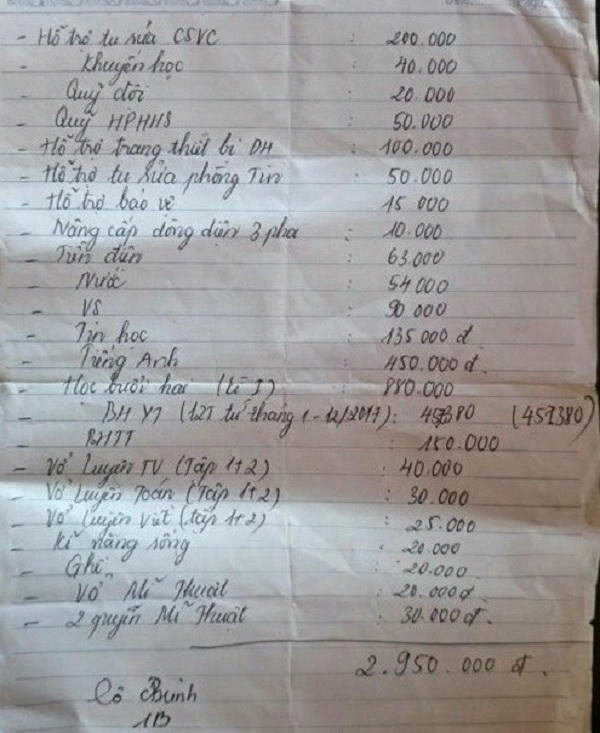 - Hỗ trợ tu sửa CSVC : 200.000
- Khuyến học : 40.000
- Quỹ đội : 20.000
- Quỹ HPHHS : 50.000
- Hỗ trợ trang thiết bị DH : 100.000
- Hỗ trợ tu sửa phòng Tin : 50.000
- Hỗ trợ bảo vệ : 15 000
- Nâng cấp dòng điện 3 pha : 10.000
- Tiền điện : 63.000
- Nước : 54 000
- VS : 90 000
- Tin học : 135 000 đ
- Tiếng Anh : 450.000 đ.
- Học buổi hai (Kì I) : 880.000
- BHYT (12T từ tháng 1-12/2017): 457380 (457380)
- BHTT : 150.000
- Vở Luyện TV (Tập 1+2) : 40.000
- Vở Luyện Toán (Tập 1+2) : 30.000
- Vở Luyện Viết (tập 1+2) : 25.000
- Kĩ năng sống : 20.000
- Ghế : 20.000
- Vở Mĩ Thuật : 20.000đ
- 2 quyển Mĩ Thuật : 30.000 đ.
2.950.000 đ.
Cô Bình
1B